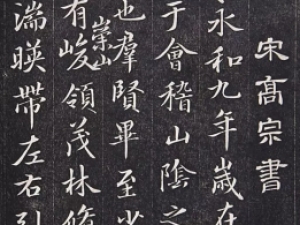 宋高宗書
永和九年歲在
于會稽山陰之
也羣賢畢至少
有崇山峻領茂林脩
湍暎帶左右引